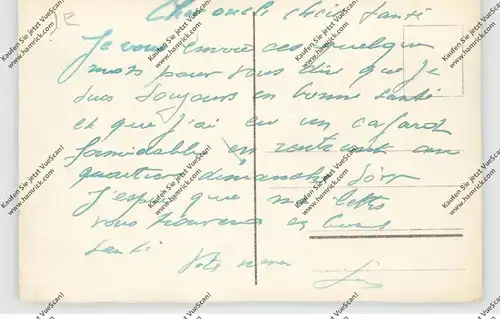 Cher oncle chère tante
Je vous envoie ces quelques
mots pour vous dire que je
suis toujours en bonne santé
et que j'ai eu un cafard
formidable en rentrant au
quartier dimanche soir
J'espère que ma lettre
vous trouvera en bonne
santé
Votre neveu
Kaufen Sie jetzt VueScan!
www.hamrick.com